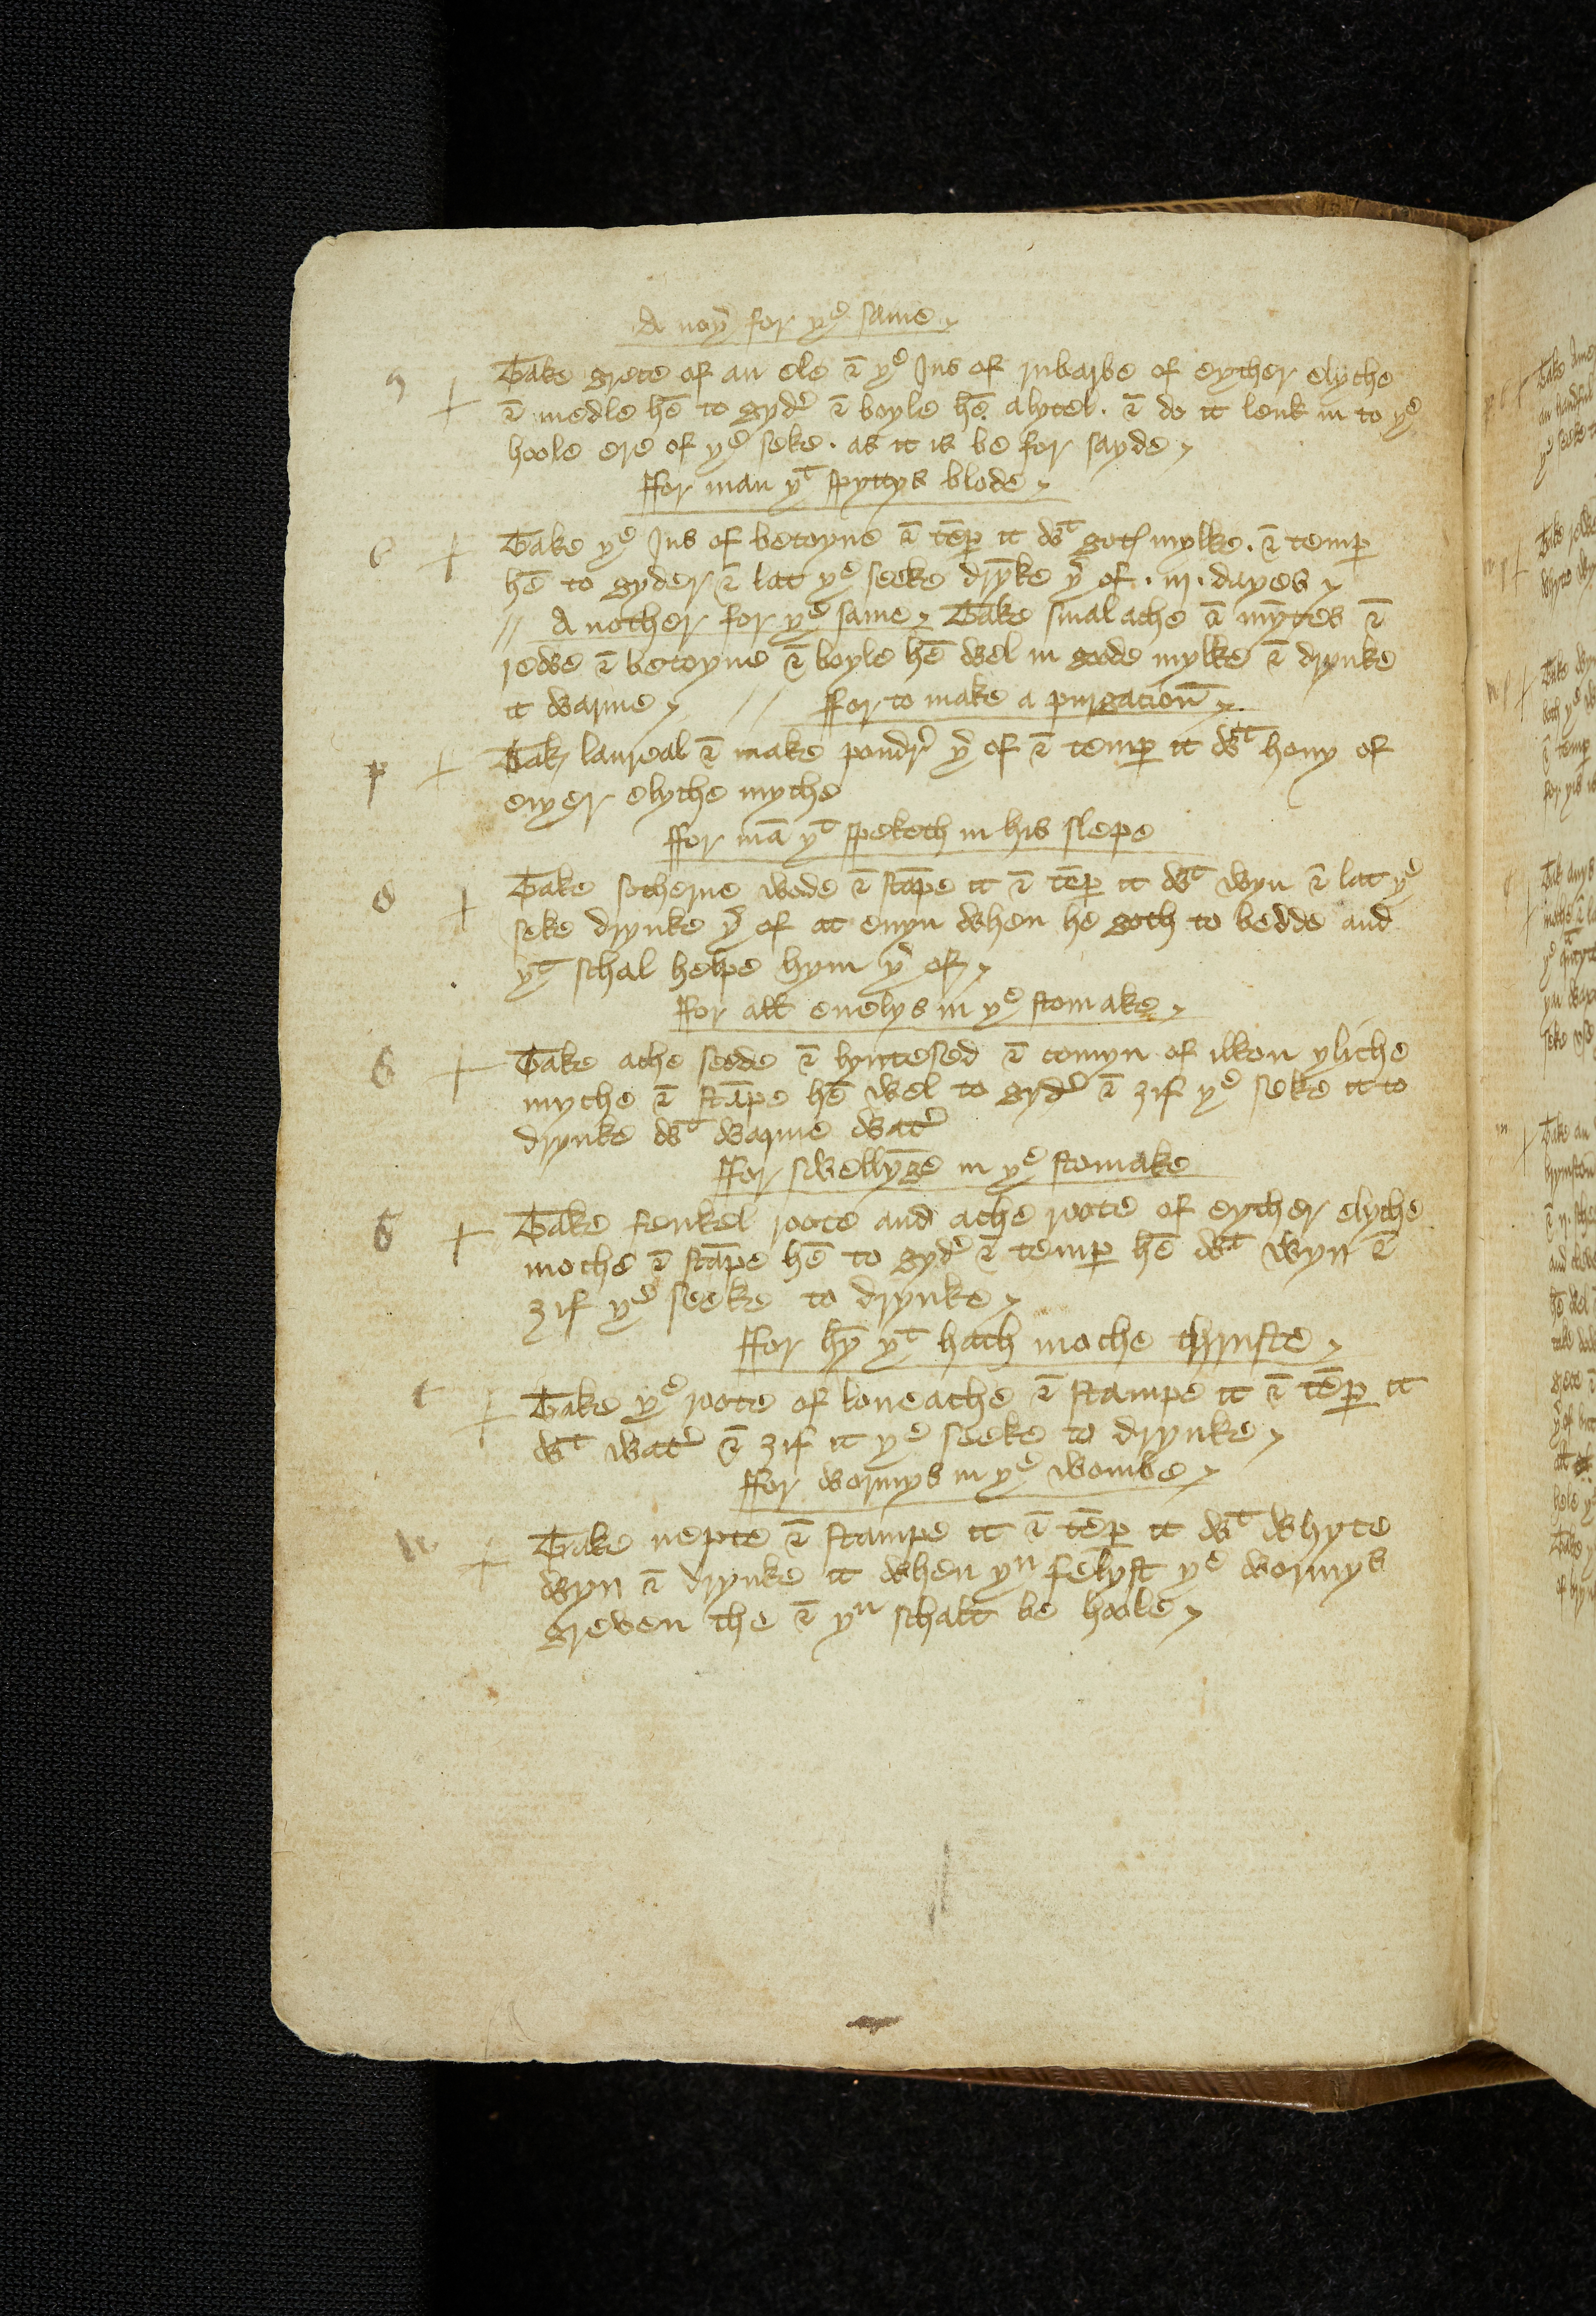 A noy̛ for yͤ same
Take grece of an ele ⁊ yͤ Jus of rubarbe of eyther elyche
⁊ medle hē to gyd͛ ⁊ boyle hē alytel . ⁊ do it leuk in to yͤ
hoole ere of yͤ seke . as it is be for sayde
ffor man yͭ spyttys blode
Take yͤ Jus of betoyne ⁊ tēꝑ it wͭ gotꝭ mylke . ⁊ temꝑ
hē to gyder ⁊ lat yͤ seeke drȳke y͛ of . iij . dayes
// A nother for yͤ same Take smalache ⁊ mȳtes ⁊
rewe ⁊ betoyne ⁊ boyle hē wel in goode mylke ⁊ drynke
it warme // ffor to make a purgacioun̄
Tak laureal ⁊ make poudr͛ y͛ of ⁊ temꝑ it wͭ hony of
eiyer elyche myche
ffor mā yͭ speketh in his slepe
Take sotherne wode ⁊ stāpe it ⁊ tēꝑ it wͭ wyn ⁊ lat yͤ
seke drynke y͛ of at euyn when he goth to bedde and
yͭ schal helpe hym y͛ of
ffor all euelys in yͤ stomake
Take ache seede ⁊ lyntesed ⁊ comyn of ilkon yliche
myche ⁊ stāpe hē wel to gyd͛ ⁊ ȝif yͤ seke it to
drynke wͭ warme wat͛
ffor swellȳge in yͤ stomake
Take fenkel roote and ache roote of eyther elyche
moche ⁊ stāpe hē to gyd͛ ⁊ temꝑ hē wͭ wyn ⁊
ȝif yͤ seeke to drynke
ffor hȳ yͭ hath moche thruste
Take yͤ roote of loueache ⁊ stampe it ⁊ tēꝑ it
wͭ wat͛ ⁊ ȝif it yͤ seeke to drynke
ffor wormys in yͤ wombe
Take nepte ⁊ stampe it ⁊ tēꝑ it wͭ whyte
wyn ⁊ drynke it when yͧ felyst yͤ wormys
greven the ⁊ yͧ schalt be hoole